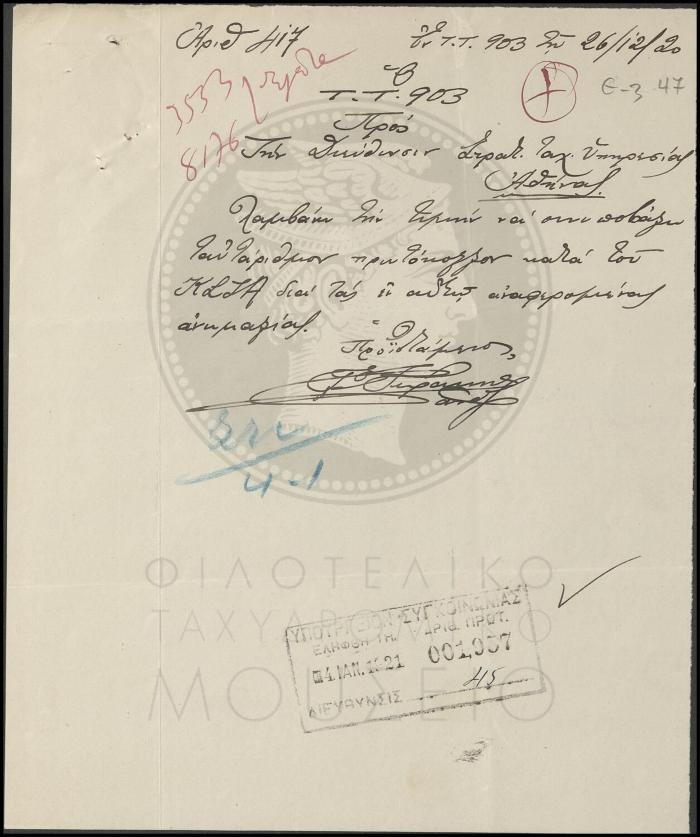 Ἀριθ 417
Ἐν Τ.Τ. 903 τῇ 26/12/20
3553
8176
Ε-3 47
Ὁ
Τ.Τ. 903
Πρός
Τὴν Διεύθυνσιν Στρατ. Ταχ. Ὑπηρεσίας
Ἀθήνας.
Λαμβάνω τὴν τιμὴν νά
πρωτόκολλον κατά τοῦ
διά τάς ἐν αὐτῷ ἀναφερομένας
ἀνωμαλίας.
Ὁ
Προϊστάμενος
4-1
ΦΙΛΟΤΕΛΙΚΟ
ΤΑΧΥΔΡΟΜΙΚΟ
ΜΟΥΣΕΙΟ
ΥΠΟΥΡΓΕΙΟΝ ΣΥΓΚΟΙΝΩΝΙΑΣ
ΕΛΗΦΘΗ ΤΗ. ΑΡΙΘ. ΠΡΩΤ.
4 ΙΑΝ. 1921 001,037
ΔΙΕΥΘΥΝΣΙΣ 45